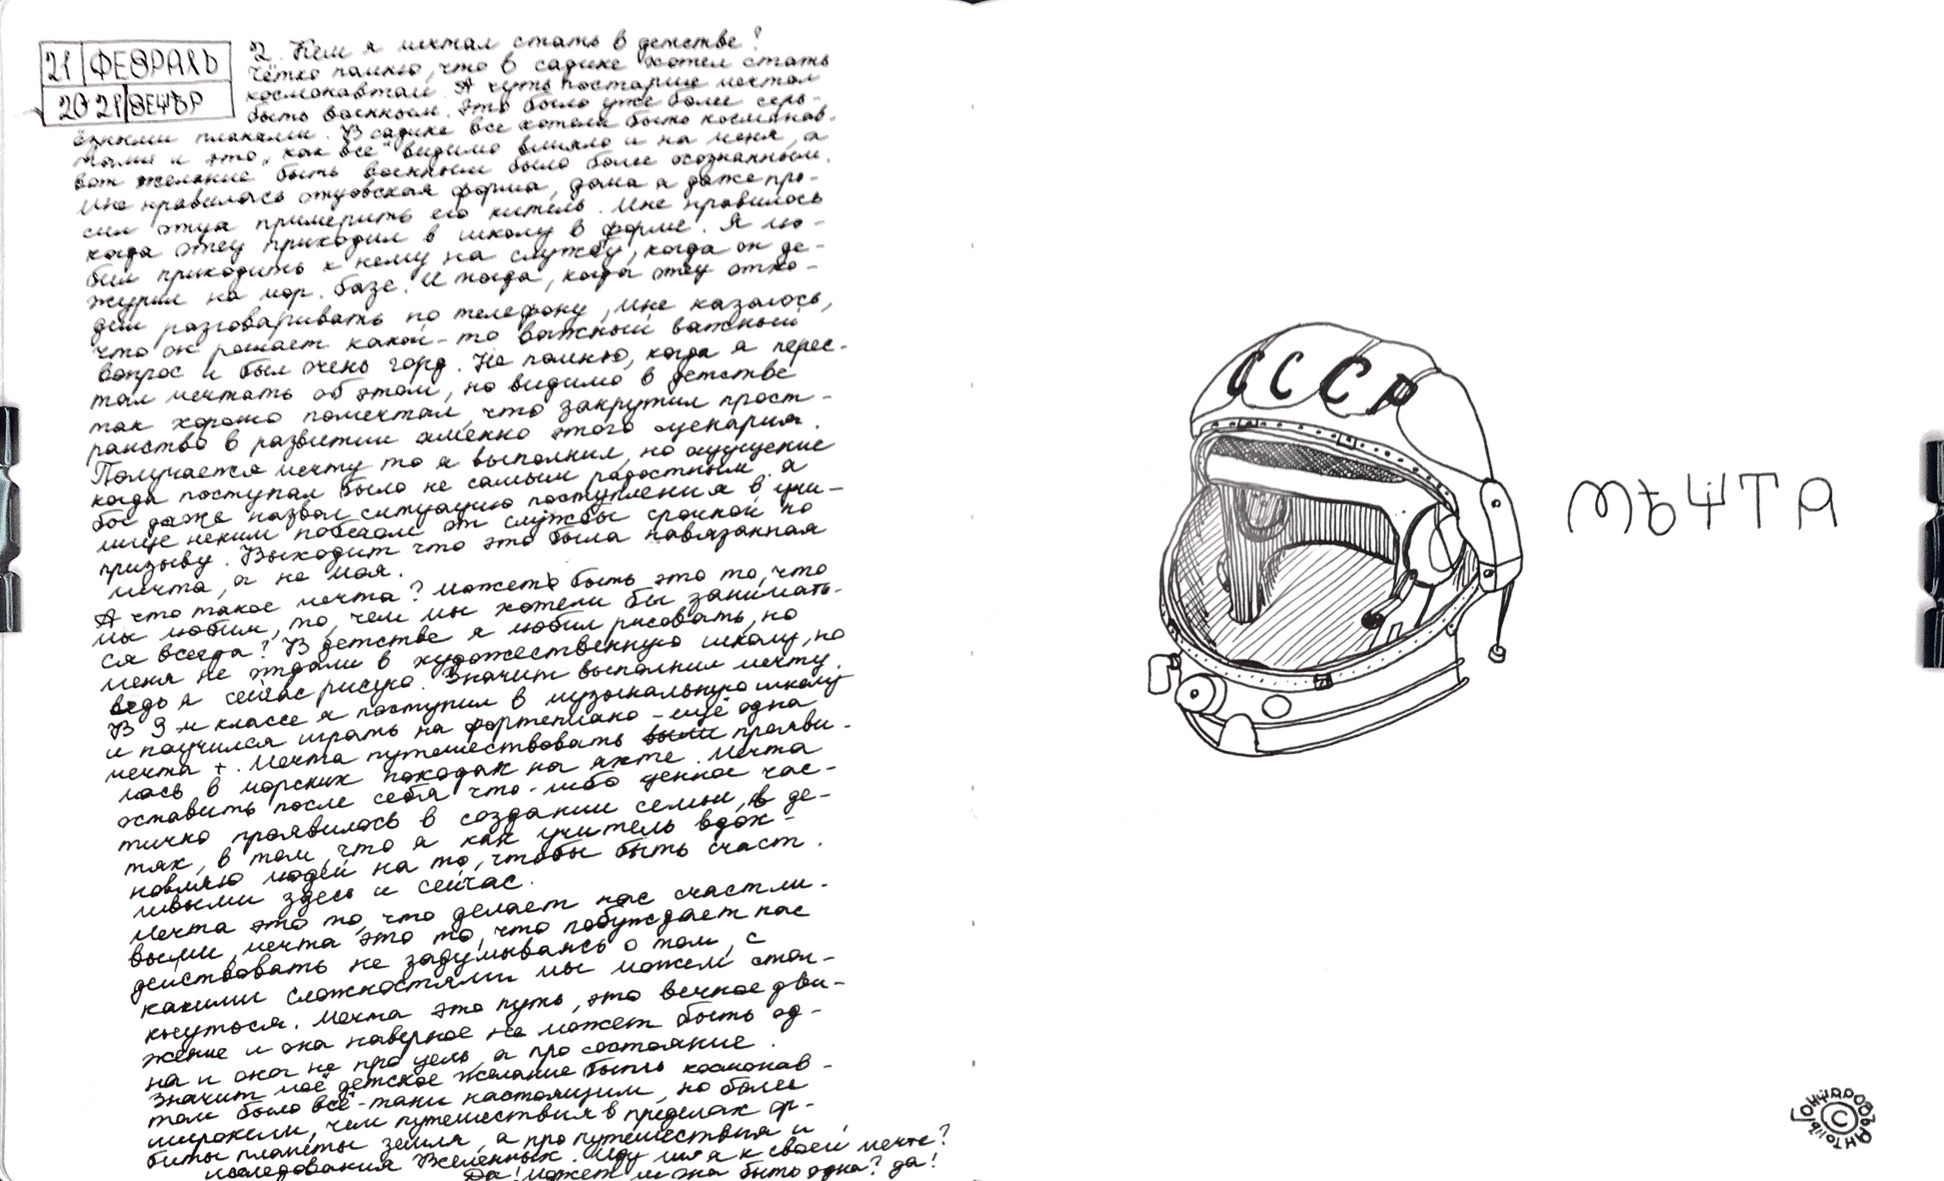 21 ФЕВРАЛЬ
2021 ВЕЧЕР
2. Кем я мечтал стать в детстве?
Чётко помню, что в садике хотел стать
космонавтом. А чуть постарше мечтал
быть военным. Это было уже более серь-
ёзными планами. В садике все хотели было космонав-
тами и это "как все" видимо влияло и на меня, а
вот желание быть военным было более осознанным.
Мне нравилась отцовская форма, дома я даже про-
сил отца примерить его китель. Мне нравилось
когда отец приходил в школу в форме. Я лю-
бил приходить к нему на службу, когда он де-
журил на мор. базе. И тогда, когда отец отхо-
дил разговаривать по телефону, мне казалось,
что он решает какой-то важный важный
вопрос и был очень горд. Не помню, когда я перес-
тал мечтать об этом, но видимо в детстве
так хорошо помечтал, что закрутил прост-
ранство в развитии именно этого сценария.
Получается мечту то я выполнил, но ощущение
когда поступал было не самым радостным, я
бы даже назвал ситуацию поступления в учи-
лище неким побегом от службы срочной по
призыву. Выходит что это была навязанная
мечта, а не моя.
А что такое мечта? Может быть это то, что
мы любим, то, чем мы хотели бы занимать-
ся всегда? В детстве я любил рисовать, но
меня не отдали в художественную школу, но
ведь я сейчас рисую. Значит выполнил мечту.
В 3 м классе я поступил в музыкальную школу
и научился играть на фортепиано - ещё одна
мечта +. Мечта путешествовать были прояви-
лась в морских походах на яхте. Мечта
оставить после себя что-либо ценное час-
тично проявилось в создании семьи, в де-
тях, в том, что я как учитель вдох-
новляю людей на то, чтобы быть счаст.
ливыми здесь и сейчас.
Мечта это то, что делает нас счастли-
выми, мечта это то, что побуждает нас
действовать не задумываясь о том, с
какими сложностями мы можем стол-
кнуться. Мечта это путь, это вечное дви-
жение и она наверное не может быть од-
на и она не про цель, а про состояние.
Значит моё детское желание быть космонав-
том было всё-таки настоящим, но более
широким, чем путешествия в пределах ор-
биты планеты земля, а про путешествия и
исследования Вселенных. Иду ли я к своей мечте?
Да! Может ли она быть одна? да!
СССР
МѢЧТА
ГОНЧАРОВЪ АНТОЛIЙ
©